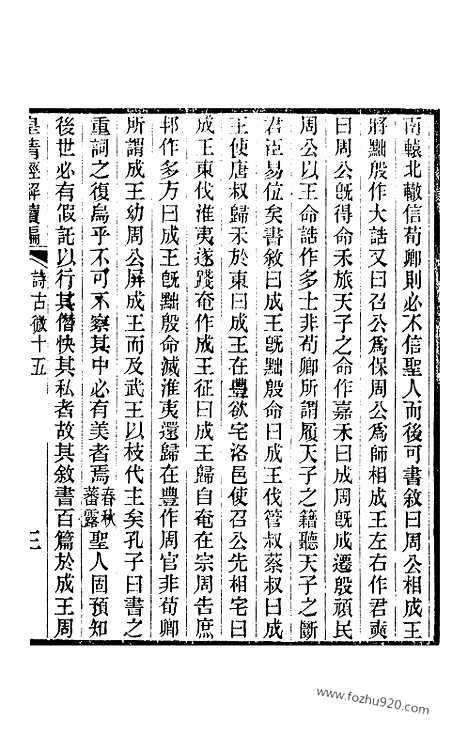 南轅北轍信荀卿則必不信聖人而後可書敘曰周公相成王
將黜殷作大誥又曰召公爲保周公爲師相成王左右作君奭
曰周公旣得命禾旅天子之命作嘉禾曰成周旣成遷殷頑民
周公以王命誥作多士非荀卿所謂履天子之籍聽天子之斷
君臣易位矣書敘曰成王旣黜殷命曰成王伐管叔蔡叔曰成
王使唐叔歸禾於東曰成王在豐欲宅洛邑使召公先相宅曰
成王東伐淮夷遂踐奄作成王征曰成王歸自奄在宗周告庶
邦作多方曰成王旣黜殷命滅淮夷還歸在豐作周官非荀卿
所謂成王幼周公屏成王而及武王以枝代主矣孔子曰書之
重詞之復烏乎不可不察其中必有美者焉春秋蕃露聖人固預知
後世必有假託以行其僭快其私者故其敘書百篇於成王周
皇清經解續編 詩古微十五 三
www.fozhu920.com